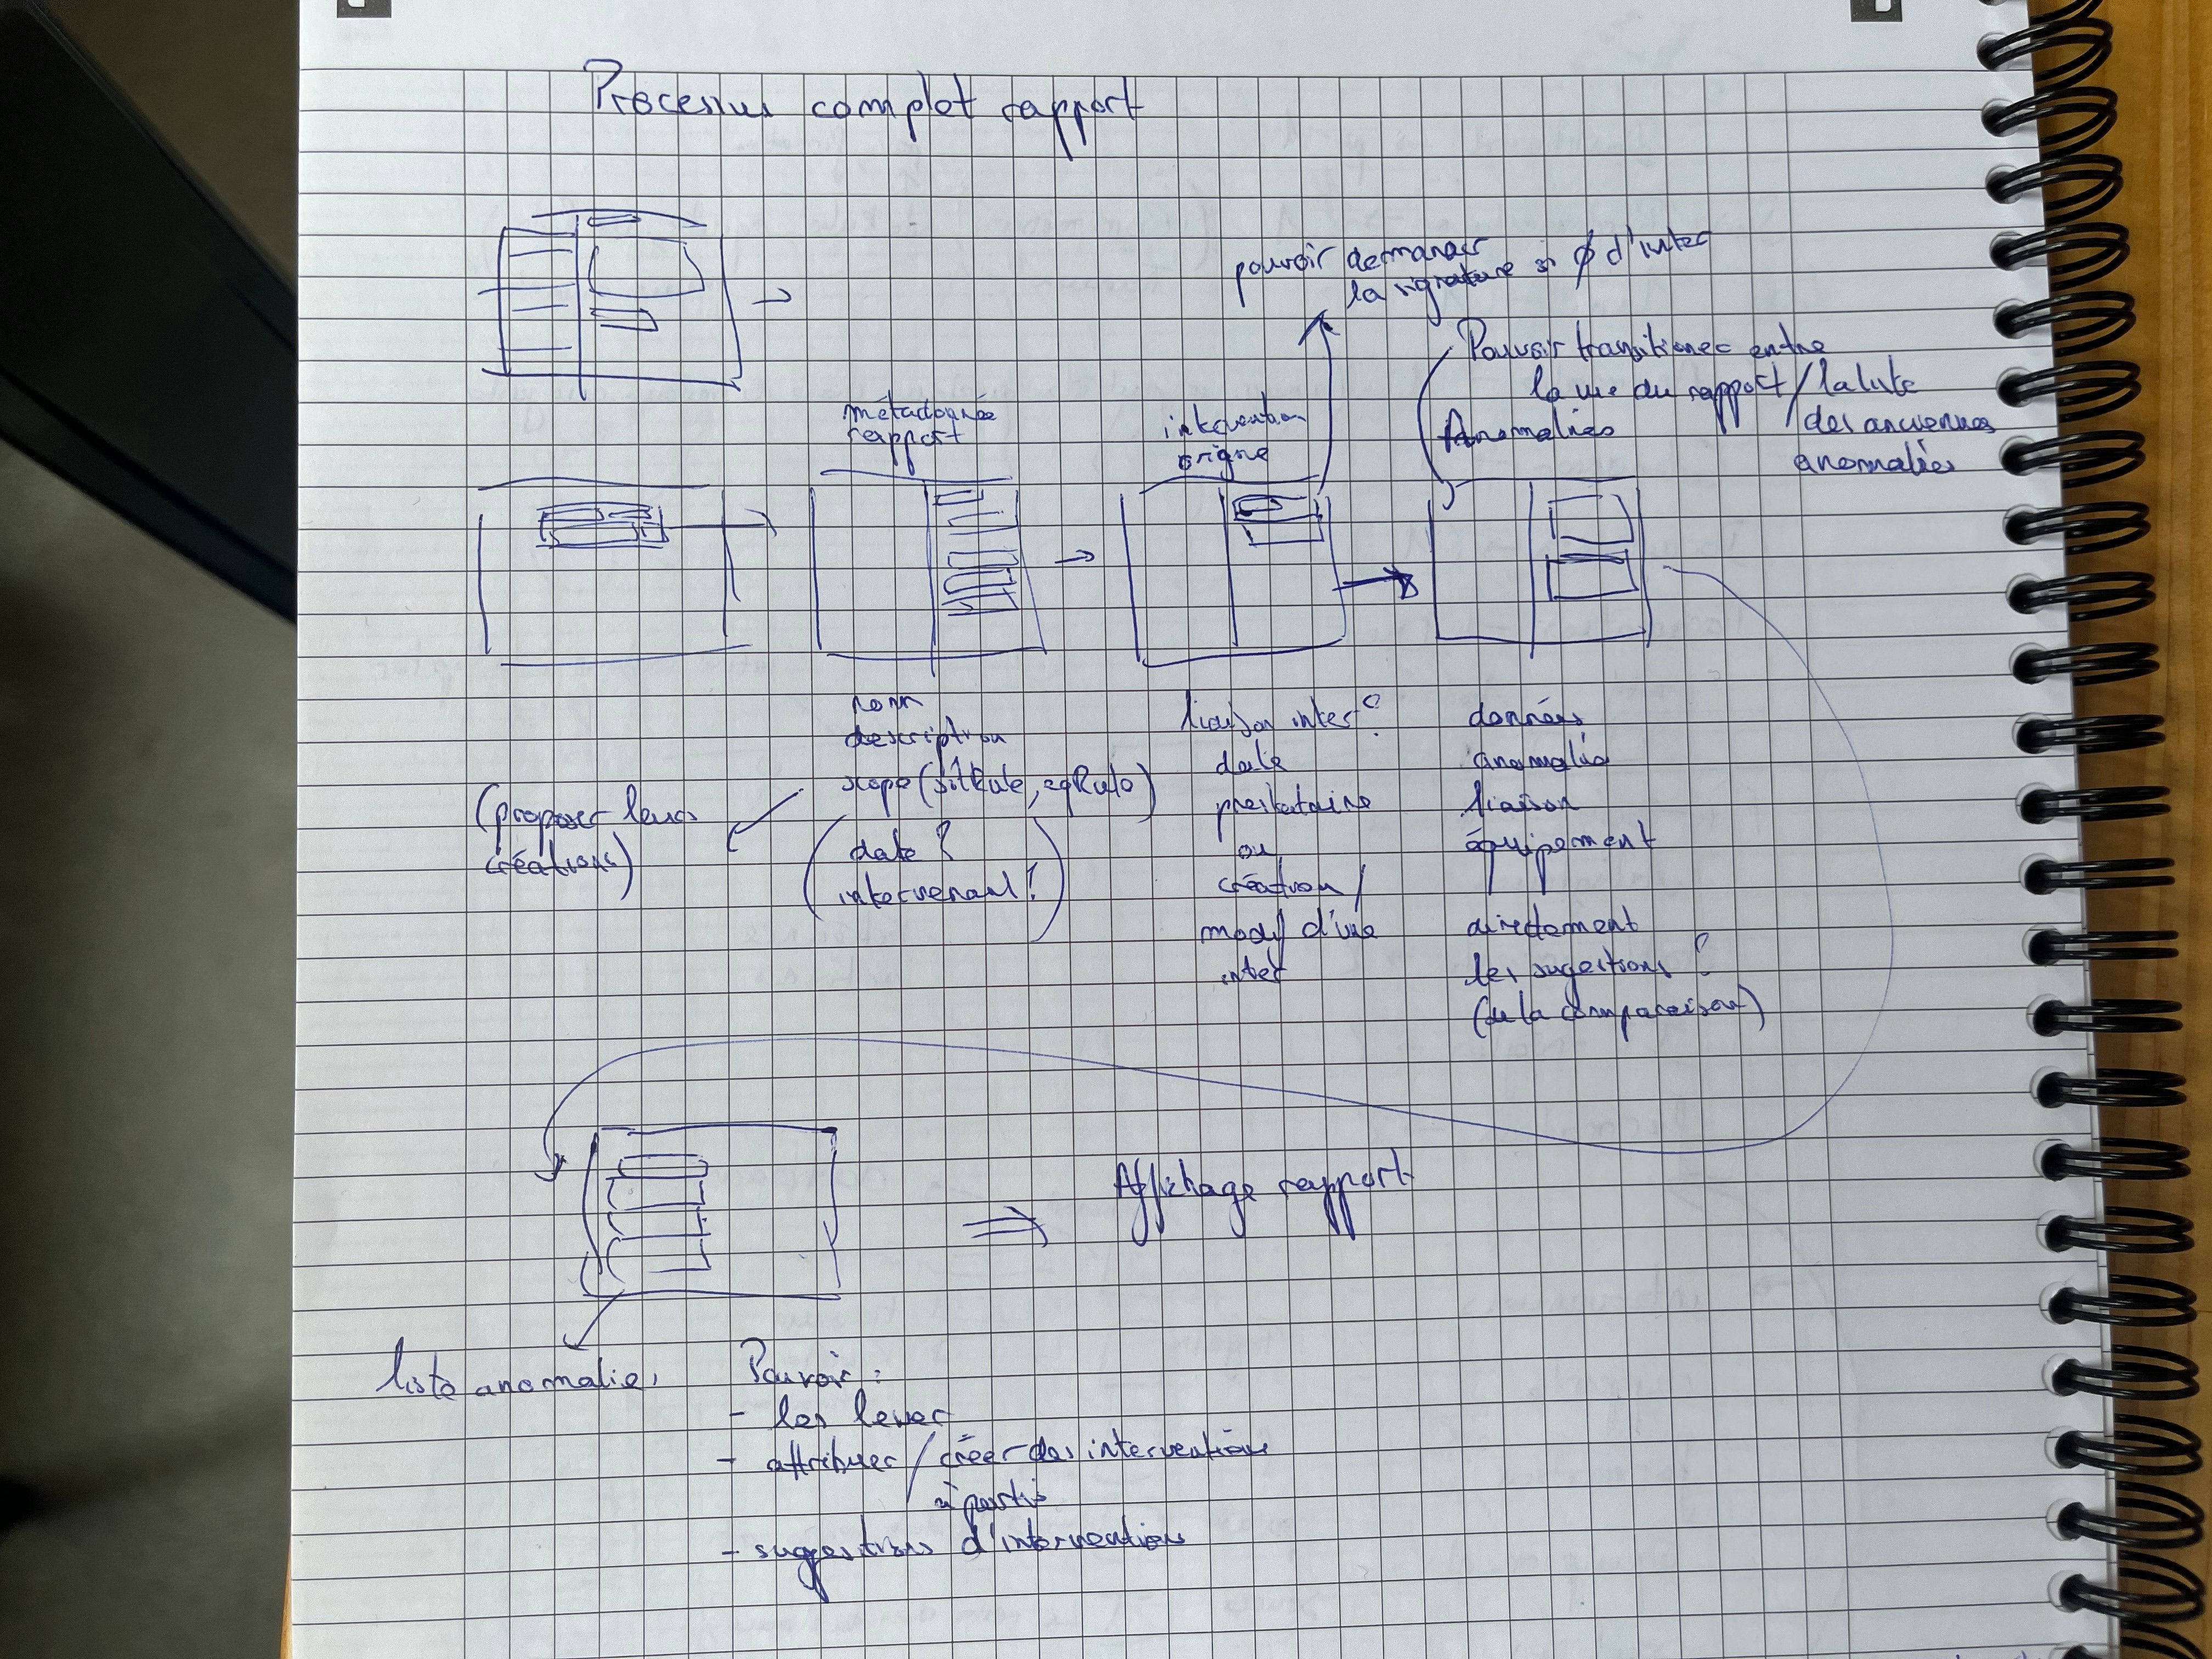 Processus complet rapport
pouvoir demander
la signature si ∅ d'inter
Pouvoir transitionner entre
la vue du rapport / la liste
des anciennes
anomalies
métadonnée
rapport
intervention
origine
Anomalies
nom
description
scope (siteRule, eqRule)
(date ?
intervenant !)
(proposer leurs
créations)
liaison inter ?
date
prestataire
ou
création /
modif d'une
inter
données
anomalie
liaison
équipement
directement
les sugestions ?
(de la comparaison)
Affichage rapport
liste anomalies
Pouvoir :
- les lever
- attribuer / créer des interventions
à partir
- suggestions d'interventions